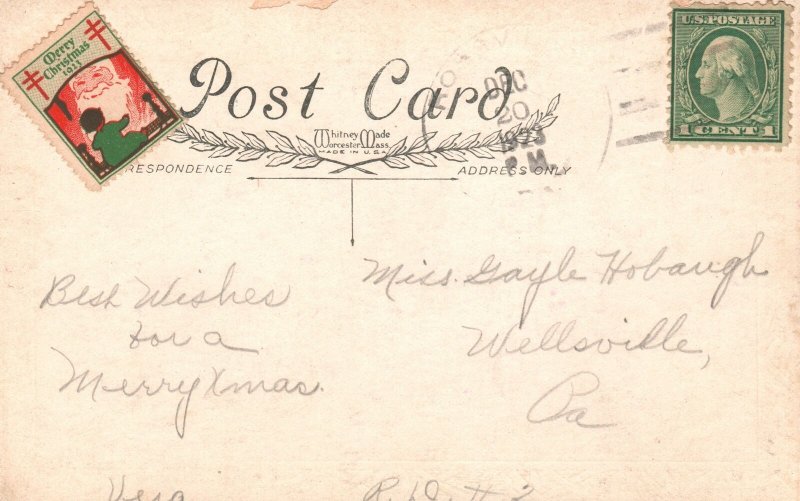 Merry
Christmas
1923
Post Card
Whitney Made
Worcester Mass.
MADE IN U.S.A.
RESPONDENCE
ADDRESS ONLY
DEC
20
1923
P.M.
U.S. POSTAGE
1 CENT 1
Best Wishes
for a
Merry Xmas.
Vera
Miss. Gayle Hobaugh
Wellsville,
Pa
R.D. #2